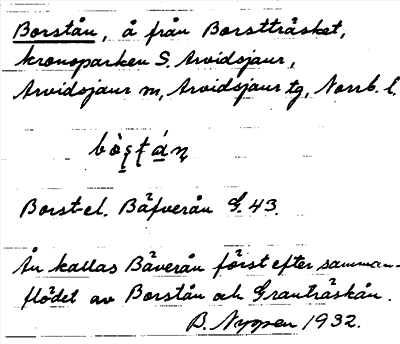 Borstån, å från Borstträsket,
kronoparken S. Arvidsjaur,
Arvidsjaur m, Arvidsjaur tg, Norrb. l.
Borst-el. Bäfverån G. 43.
Ån kallas Bäverån först efter samman-
flödet av Borstån och Granträskån.
B. Nyppen 1932.